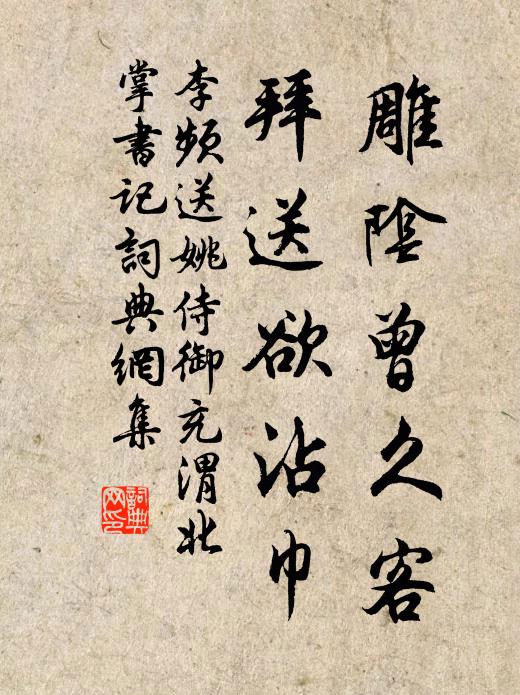 雕陰曾久客
拜送欲沾巾
李頻送姚侍御充渭北
掌書記詞典網集
詞典网印